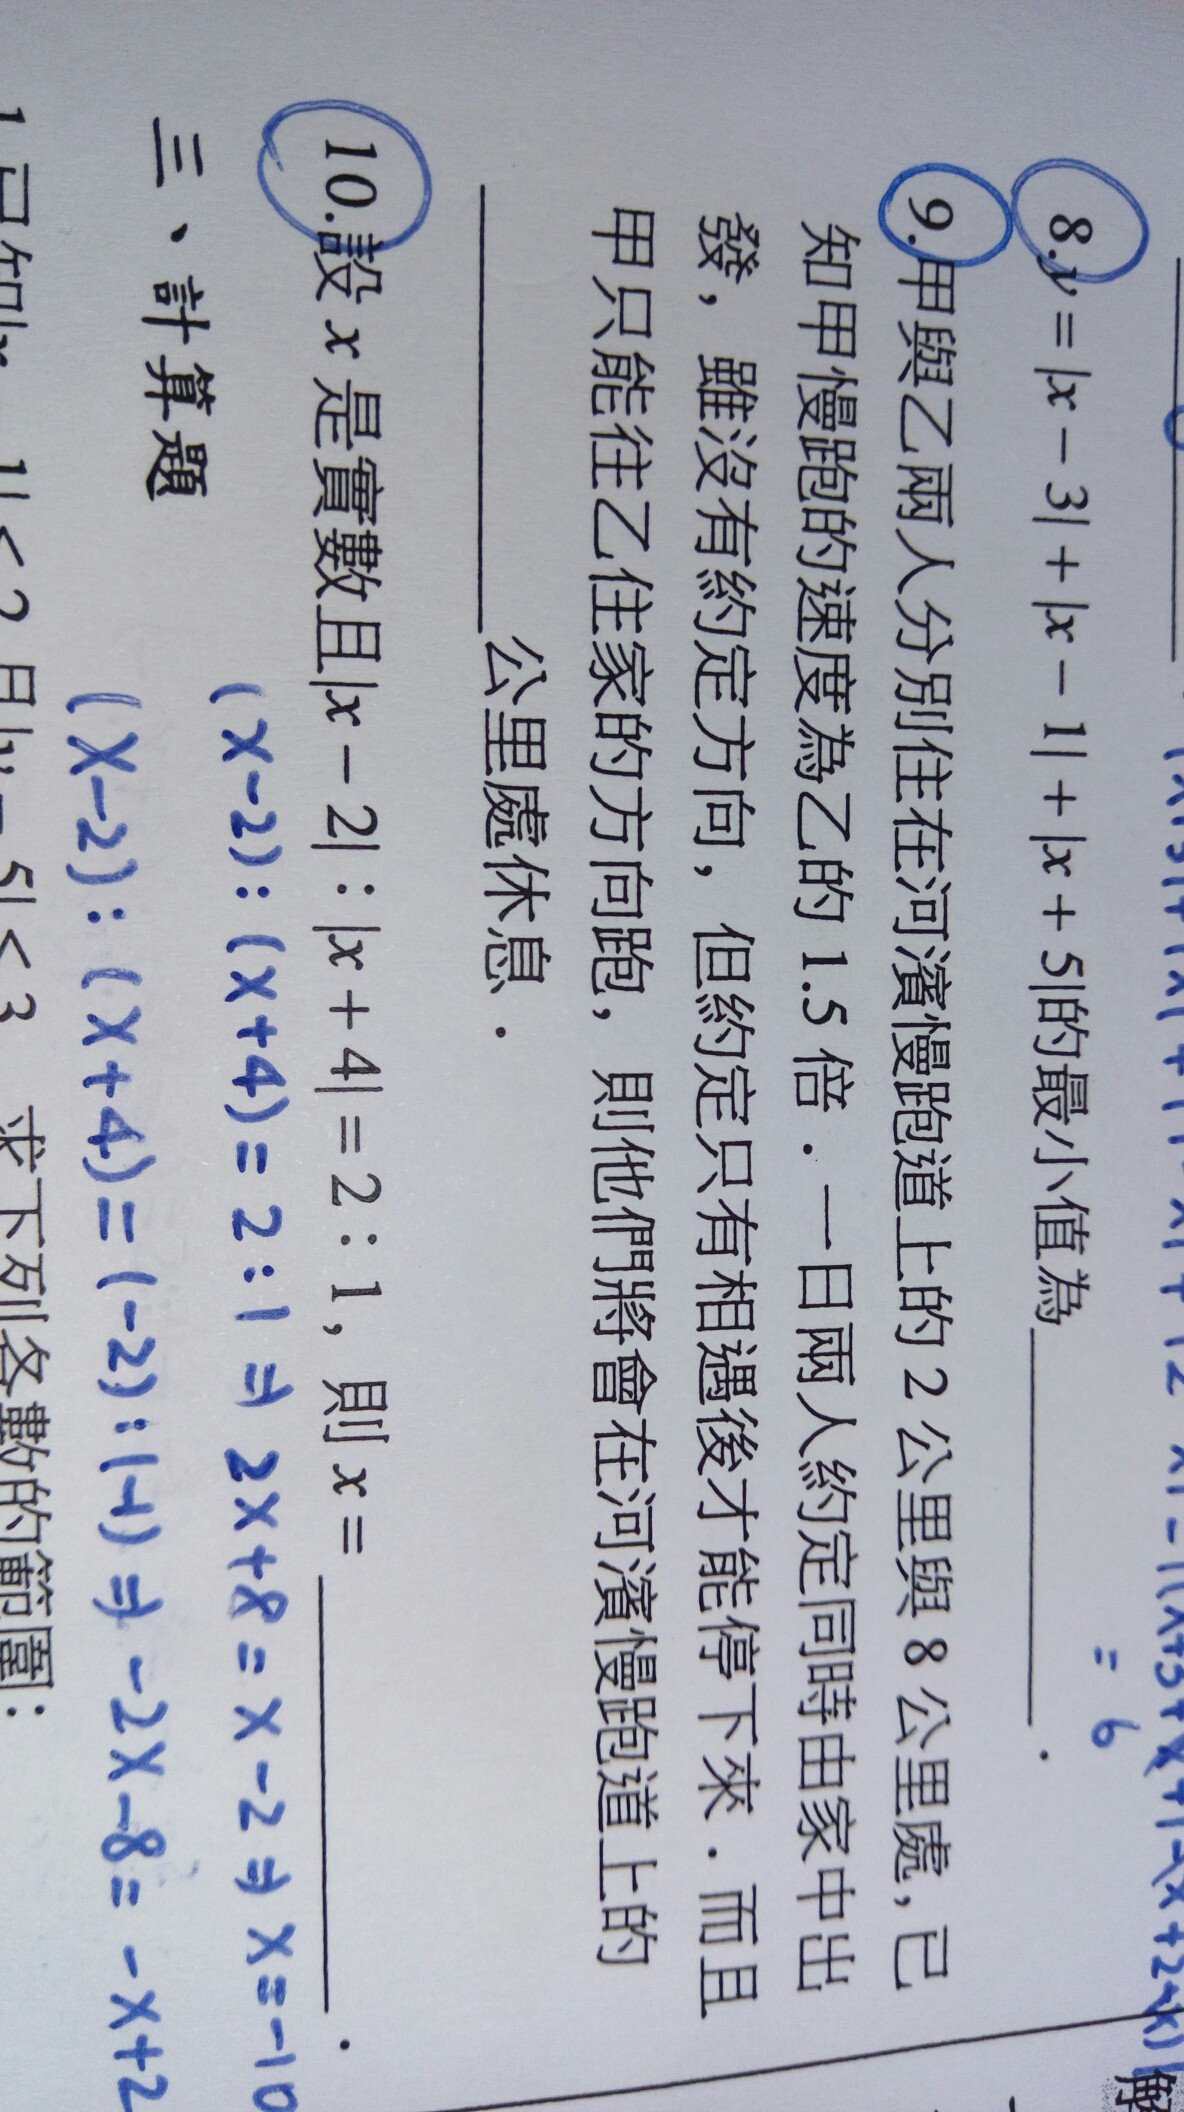 = 6
8. y = |x − 3| + |x − 1| + |x + 5|的最小值為
9. 甲與乙兩人分別住在河濱慢跑道上的 2 公里與 8 公里處，已
知甲慢跑的速度為乙的 1.5 倍．一日兩人約定同時由家中出
發，雖沒有約定方向，但約定只有相遇後才能停下來．而且
甲只能往乙住家的方向跑，則他們將會在河濱慢跑道上的
公里處休息．
10. 設 x 是實數且|x − 2| : |x + 4| = 2 : 1，則 x = .
(x-2):(x+4)= 2:1 ⇒ 2x+8 = x-2 ⇒ x=-10
三、計算題
(x-2):(x+4)=(-2):(-1) ⇒ -2x-8= -x+2
求下列各數的範圍：